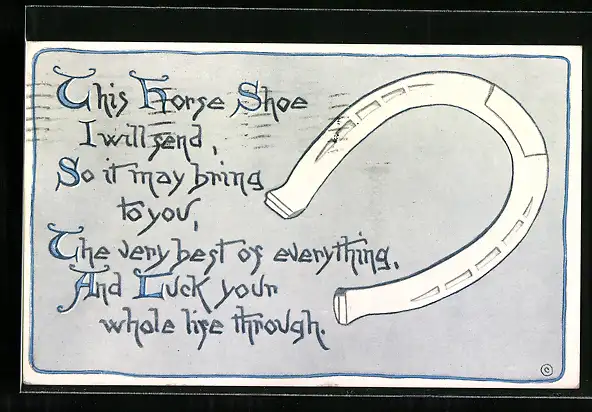 This Horse Shoe
I will send,
So it may bring
to you,
The very best of everything,
And Luck your
whole life through.
©